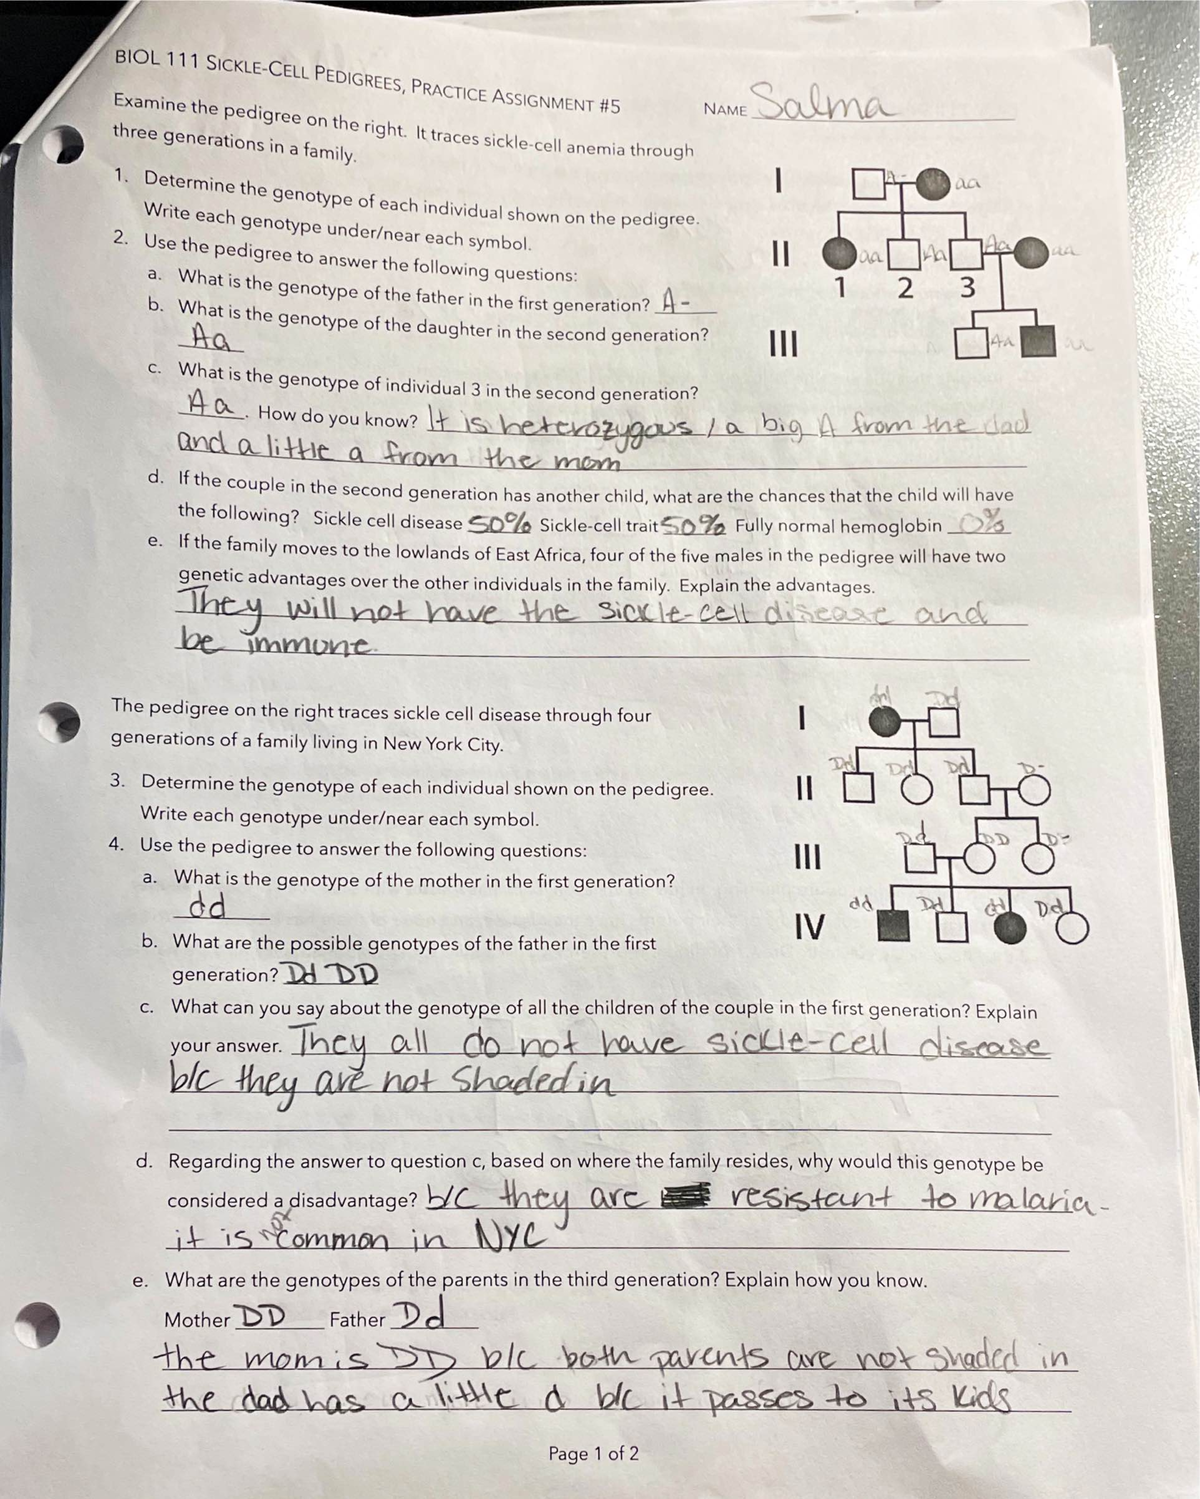 BIOL 111 SICKLE-CELL PEDIGREES, PRACTICE ASSIGNMENT #5
NAME Salma
Examine the pedigree on the right. It traces sickle-cell anemia through
three generations in a family.
1. Determine the genotype of each individual shown on the pedigree.
Write each genotype under/near each symbol.
2. Use the pedigree to answer the following questions:
a. What is the genotype of the father in the first generation? A-
b. What is the genotype of the daughter in the second generation?
Aa
I
A- aa
II
aa Aa Aa aa
1 2 3
III
Aa aa
c. What is the genotype of individual 3 in the second generation?
Aa. How do you know? It is heterozygous / a big A from the dad
and a little a from the mom
d. If the couple in the second generation has another child, what are the chances that the child will have
the following? Sickle cell disease 50% Sickle-cell trait 50% Fully normal hemoglobin 0%
e. If the family moves to the lowlands of East Africa, four of the five males in the pedigree will have two
genetic advantages over the other individuals in the family. Explain the advantages.
They will not have the sickle-cell disease and
be immune.
The pedigree on the right traces sickle cell disease through four
generations of a family living in New York City.
3. Determine the genotype of each individual shown on the pedigree.
Write each genotype under/near each symbol.
4. Use the pedigree to answer the following questions:
a. What is the genotype of the mother in the first generation?
dd
I
Dd
II
Dd Dd Dd D-
III
Dd DD D-
IV
dd Dd dd Dd
b. What are the possible genotypes of the father in the first
generation? Dd DD
c. What can you say about the genotype of all the children of the couple in the first generation? Explain
your answer. They all do not have sickle-cell disease
b/c they are not shaded in
d. Regarding the answer to question c, based on where the family resides, why would this genotype be
considered a disadvantage? b/c they are resistant to malaria-
it is not common in NYC
e. What are the genotypes of the parents in the third generation? Explain how you know.
Mother DD Father Dd
the mom is DD b/c both parents are not shaded in
the dad has a little d b/c it passes to its kids
Page 1 of 2